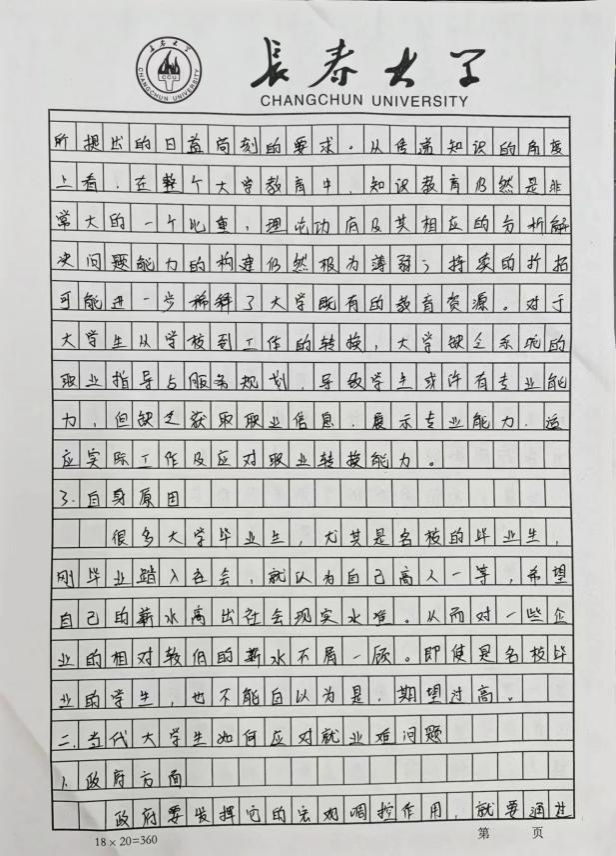 長春大学
CHANGCHUN UNIVERSITY
所提出的日益苛刻的要求。从传递知识的角度
上看，在整个大学教育中，知识教育仍然是非
常大的一个比重，理论功底及其相应的分析解
决问题能力的构建仍然极为薄弱；持续的扩招
可能进一步稀释了大学既有的教育资源。对于
大学生从学校到工作的转换，大学缺乏系统的
职业指导与服务规划，导致学生或许有专业能
力，但缺乏获取职业信息、展示专业能力、适
应实际工作及应对职业转换能力。
3.自身原因
很多大学毕业生，尤其是名校的毕业生，
刚毕业踏入社会，就认为自己高人一等，希望
自己的薪水高出社会现实水准。从而对一些企
业的相对较低的薪水不屑一顾。即使是名校毕
业的学生，也不能自以为是，期望过高。
二、当代大学生如何应对就业难问题
1.政府方面
政府要发挥它的宏观调控作用，就要通过
18×20=360 第 页